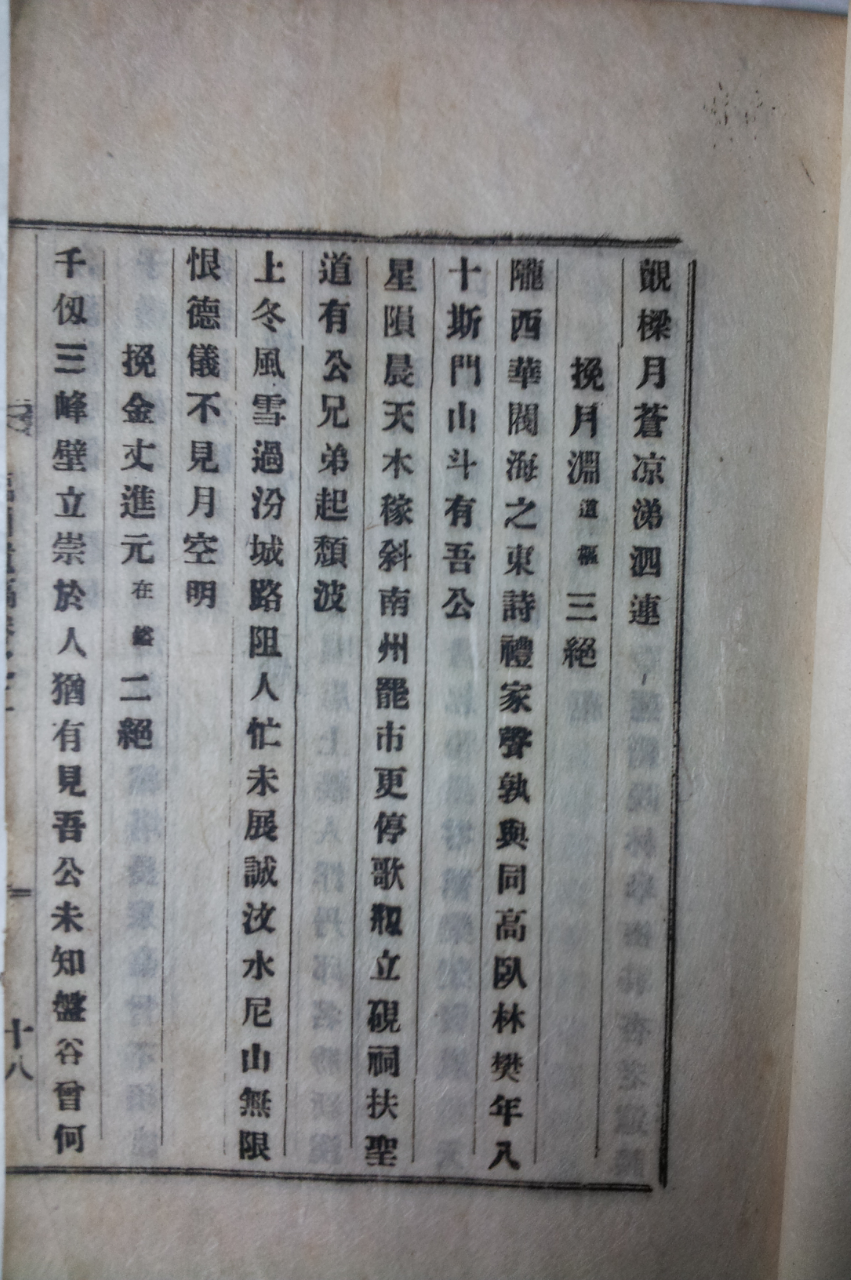 觀樑月蒼凉涕泗連
挽月淵道樞三絕
隴西華閥海之東詩禮家聲孰與同高臥林樊年八
十斯門山斗有吾公
星隕晨天木稼斜南州罷市更停歌刱立硯祠扶聖
道有公兄弟起頹波
上冬風雪過汾城路阻人忙未展誠汶水尼山無限
恨德儀不見月空明
挽金丈進元在 二絕
千仭三峰壁立崇於人猶有見吾公未知盤谷曾何
十八